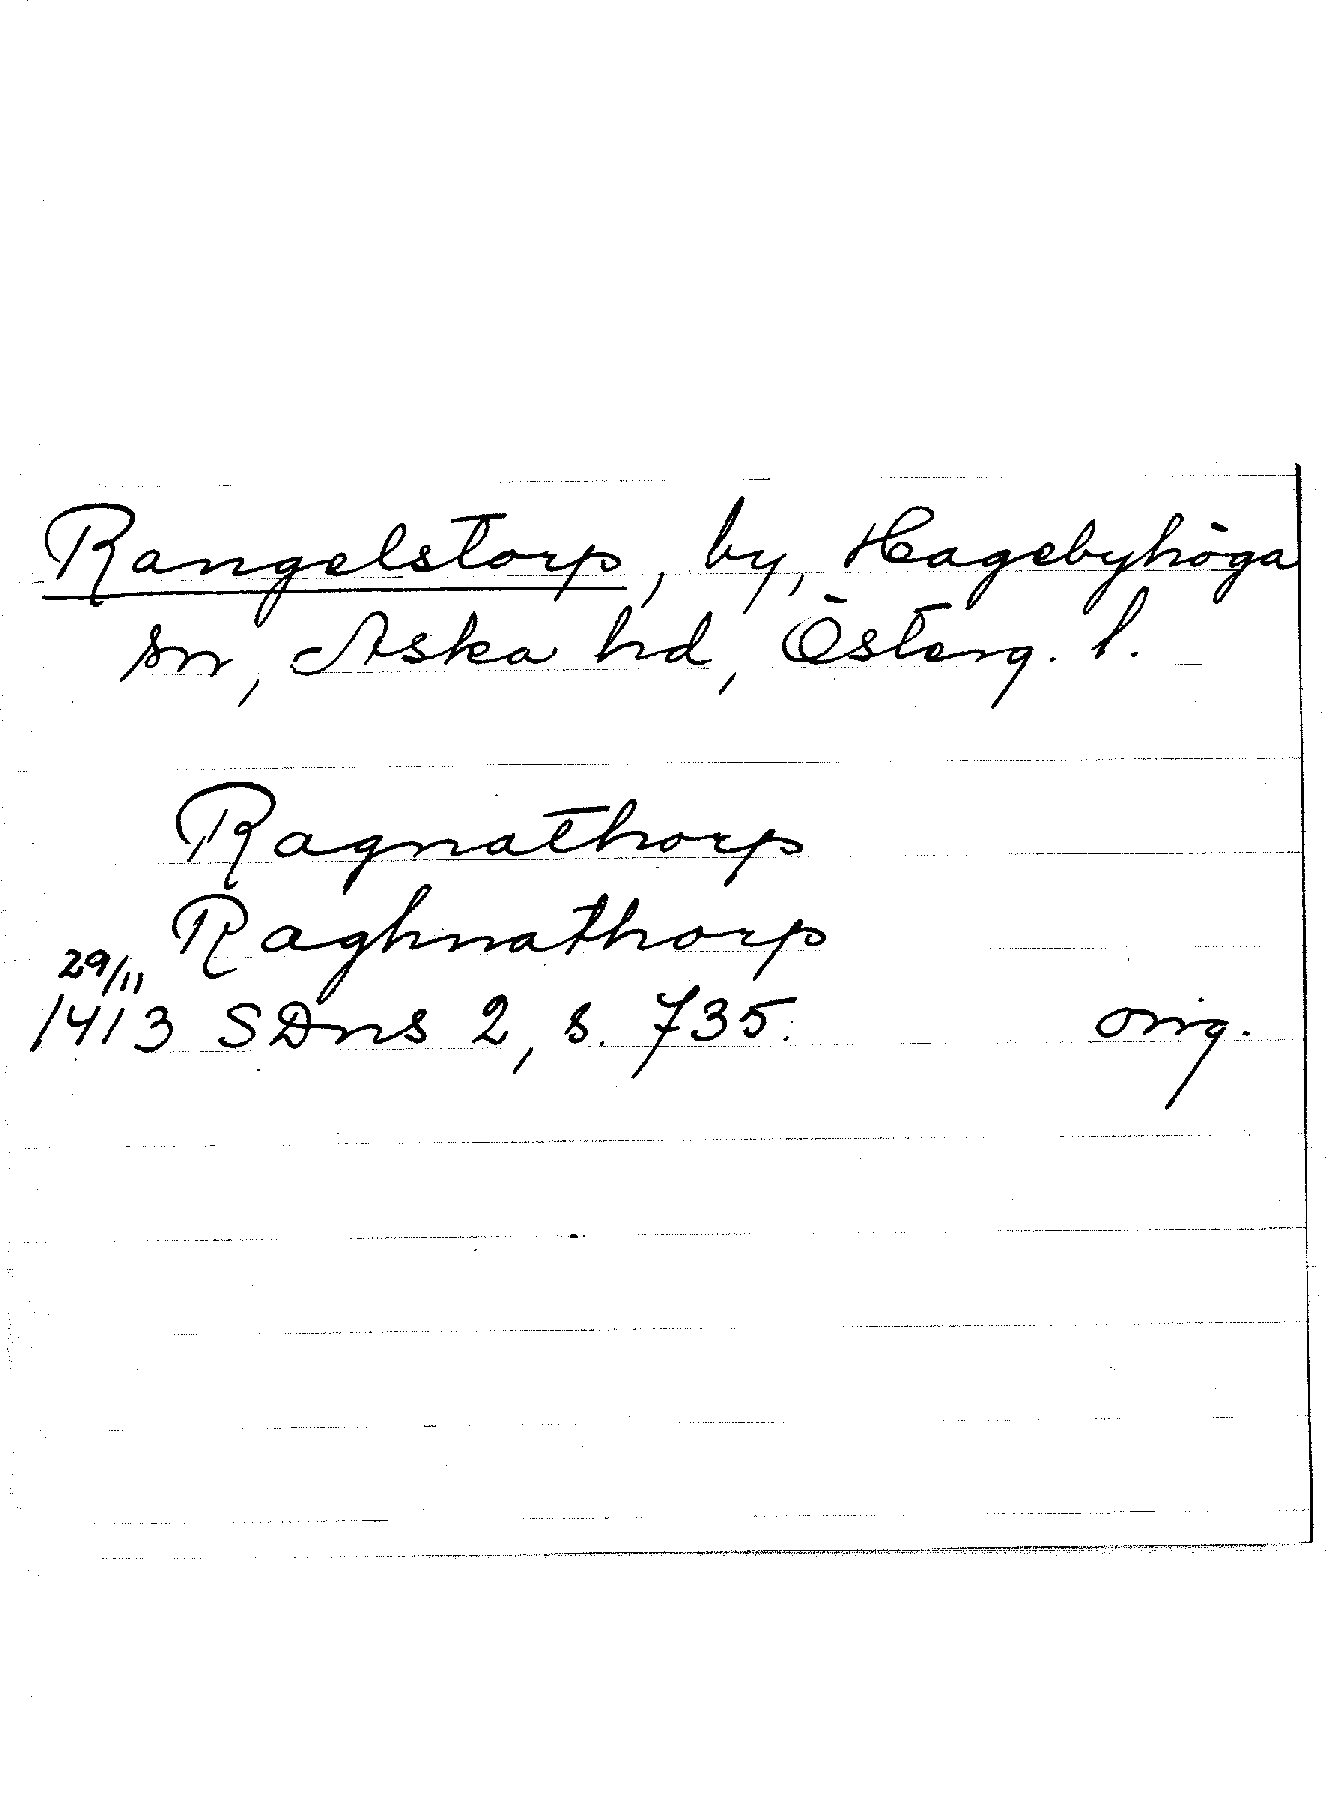 Rangelstorp, by, Hagebyhöga
sn, Aska hd, Österg. l.
Ragnathorp
Raghnathorp
29/11
1413 SDns 2, s. 735. orig.